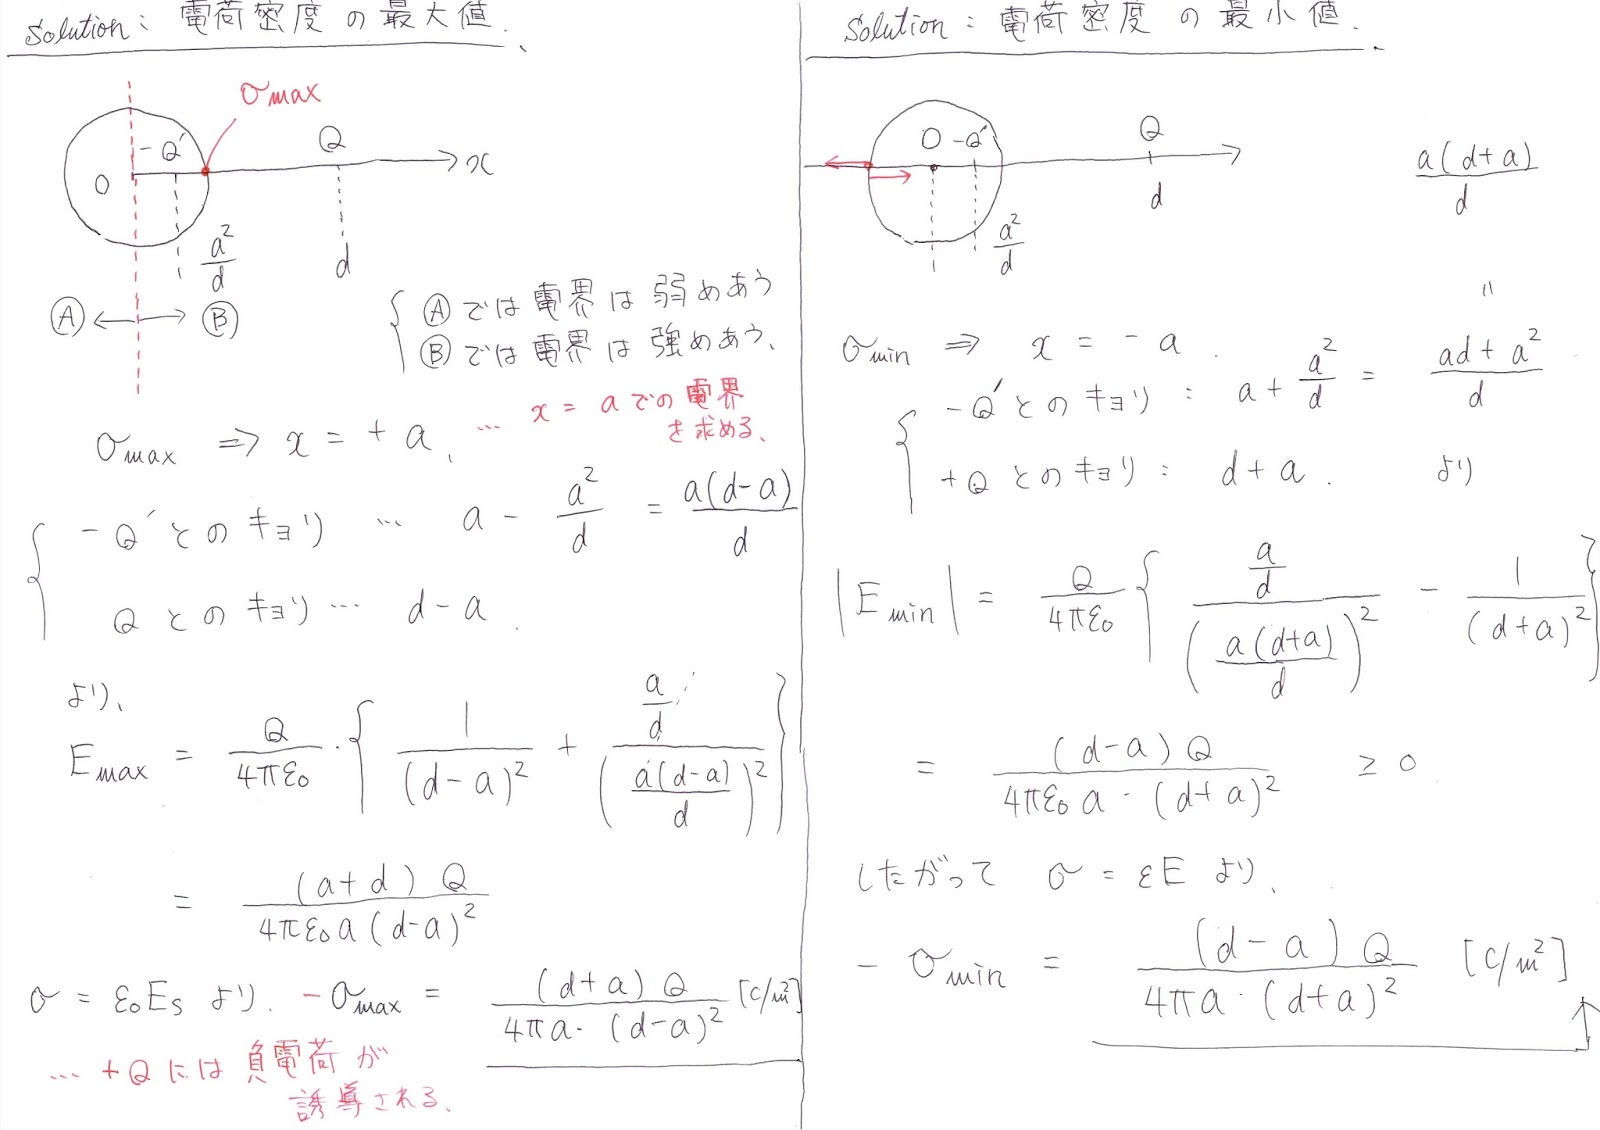 Solution: 電荷密度の最大値.
σmax
-Q' Q
O x
a²/d d
Ⓐ Ⓑ
{ Ⓐでは電界は弱めあう
Ⓑでは電界は強めあう、
σmax ⇒ x = + a. … x = a での電界
を求める、
{ -Q'とのキョリ … a - a²/d = a(d-a)/d
Qとのキョリ … d-a.
より、
Emax = Q/4πε₀ · { 1/(d-a)² + (a/d)/(a(d-a)/d)² }
= (a+d)Q/4πε₀a(d-a)²
σ = ε₀Es より. -σmax = (d+a)Q/4πa·(d-a)² [C/m²]
… +Qには負電荷が
誘導される、
Solution: 電荷密度の最小値.
O -Q' Q
a²/d d
a(d+a)/d
〃
σmin ⇒ x = -a.
{ -Q'とのキョリ : a + a²/d = ad+a²/d
+Qとのキョリ : d+a. より
|Emin| = Q/4πε₀ { (a/d)/(a(d+a)/d)² - 1/(d+a)² }
= (d-a)Q/4πε₀a·(d+a)² ≥ 0
したがって σ = εE より、
-σmin = (d-a)Q/4πa·(d+a)² [C/m²]